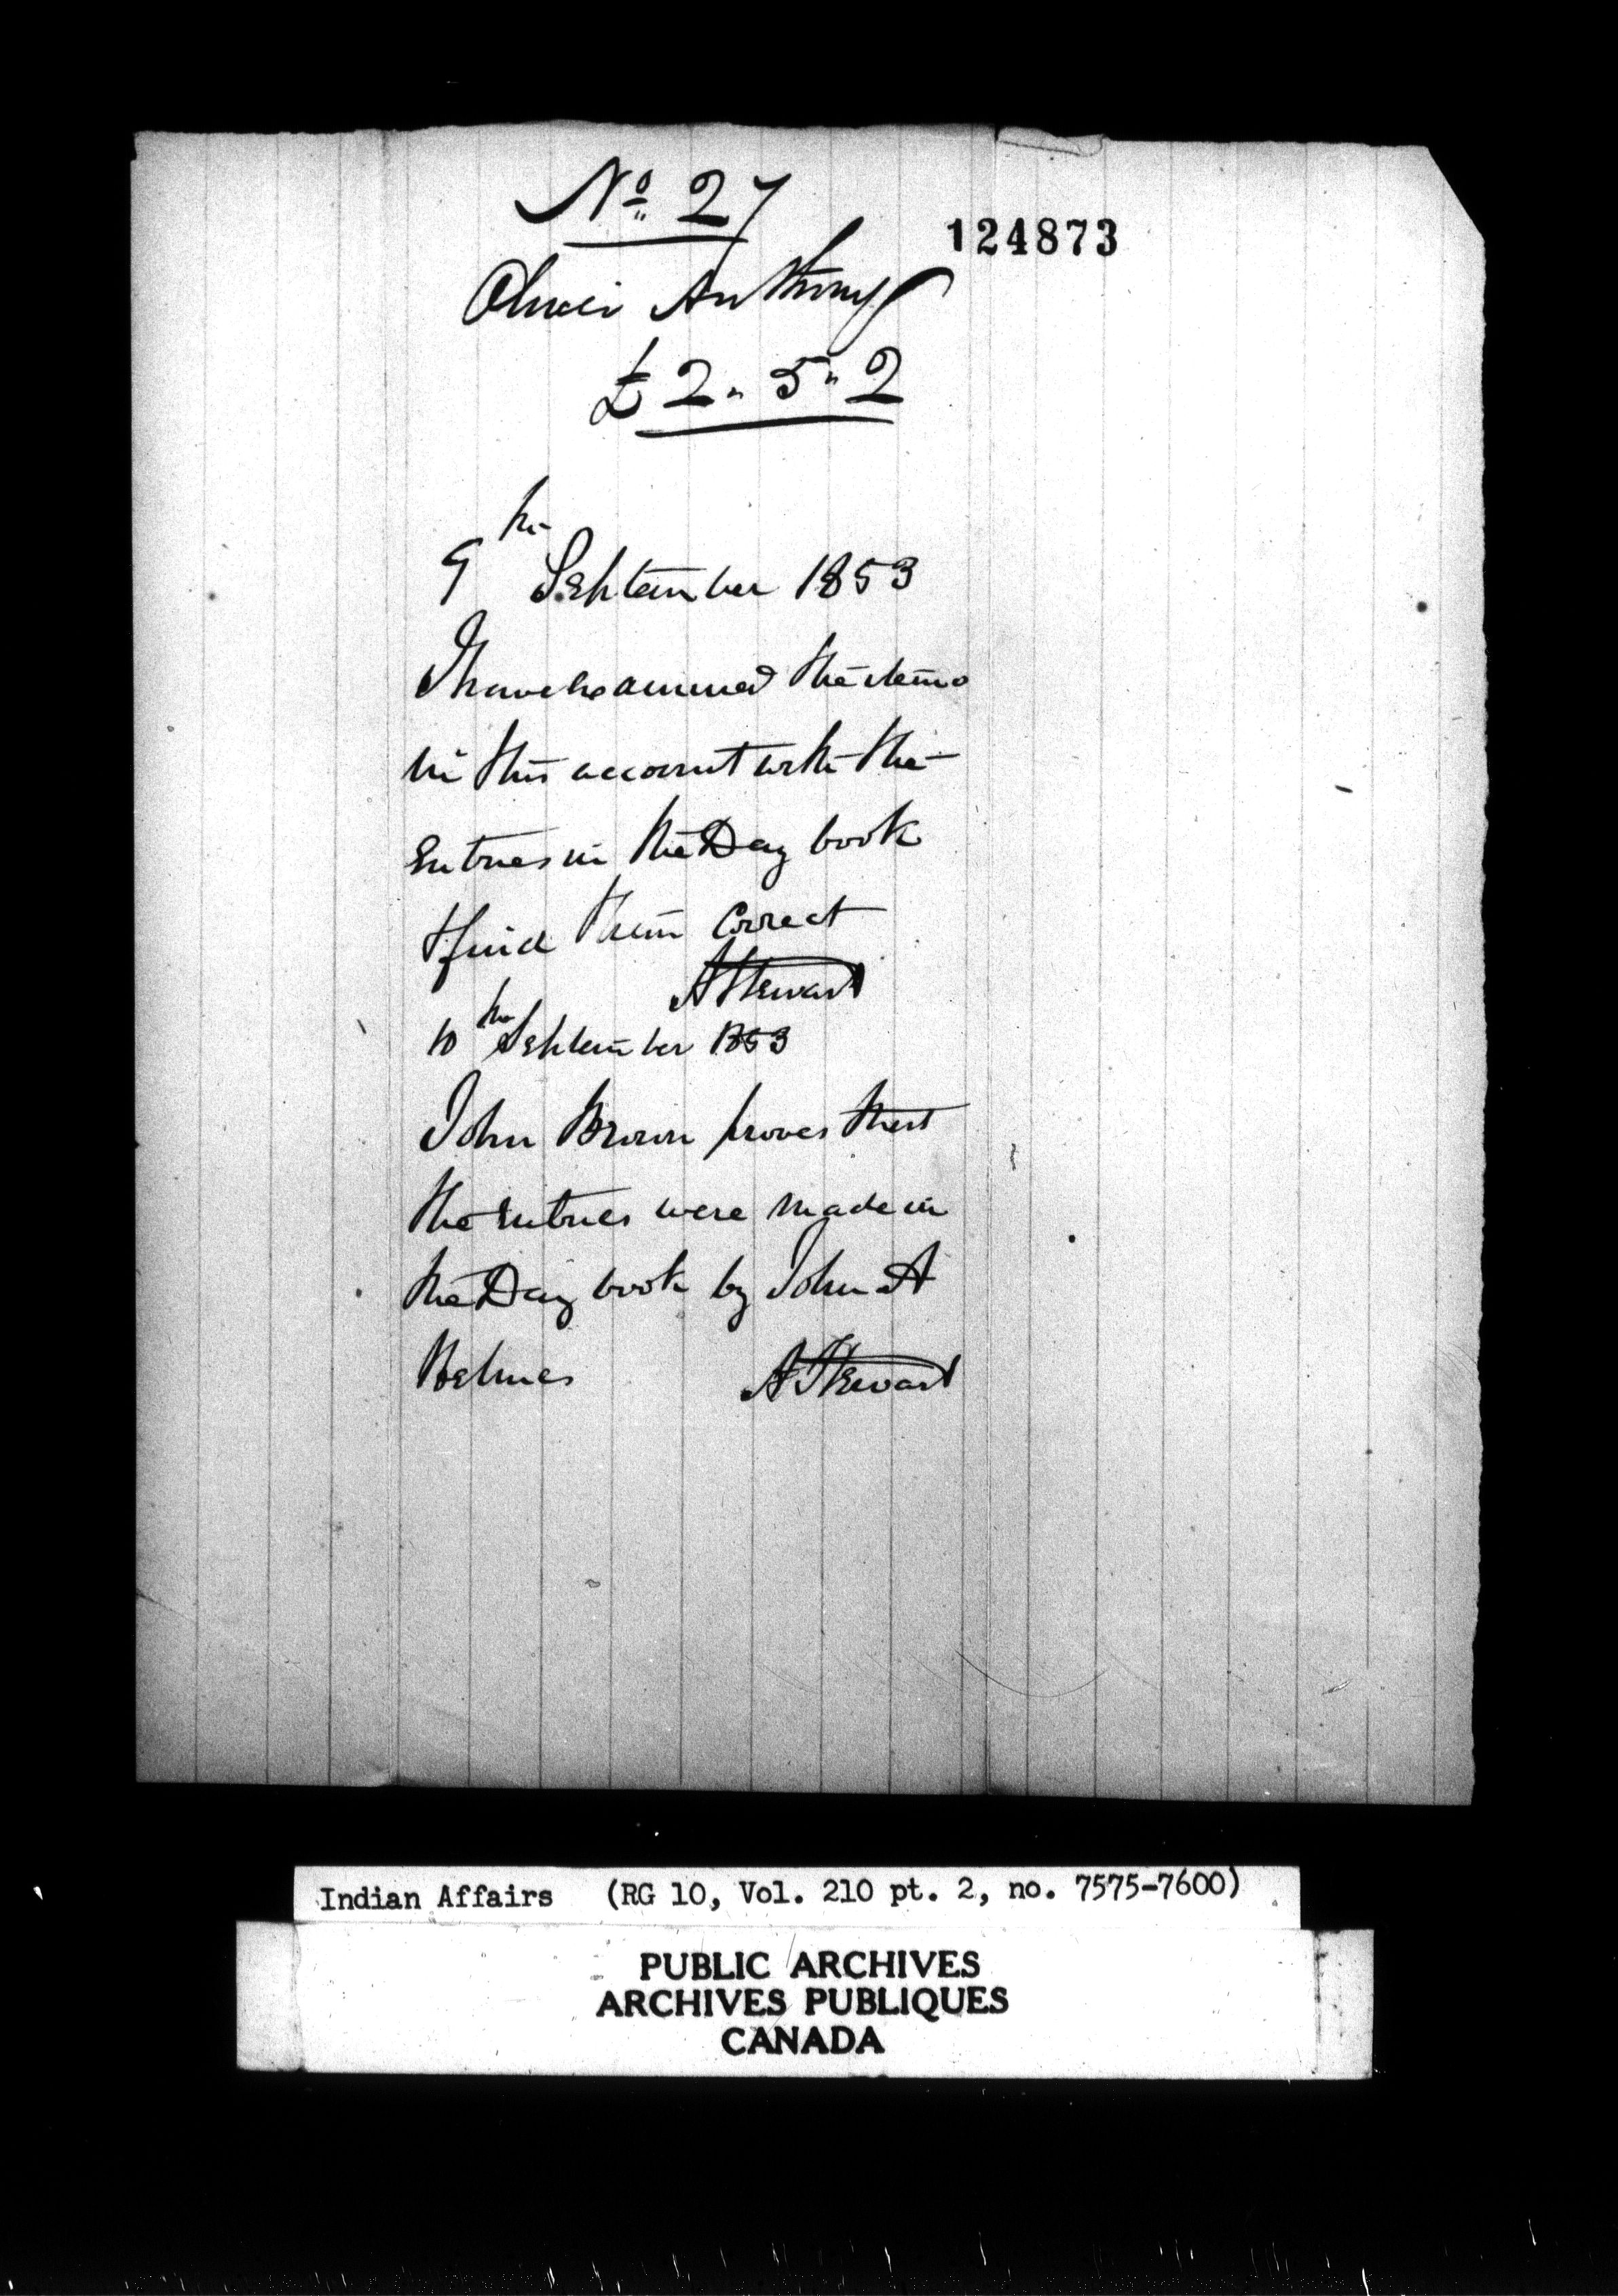 No 27
124873
Oliver Anthony
£2 " 5 " 2
9th September 1853
I have examined the items
in this account with the
Entries in the Day book
& find them Correct
A Stewart
10th September 1853
John Brown proves that
the entries were made in
the Day book by John A
Holmes A Stewart
Indian Affairs (RG 10, Vol. 210 pt. 2, no. 7575-7600)
PUBLIC ARCHIVES
ARCHIVES PUBLIQUES
CANADA